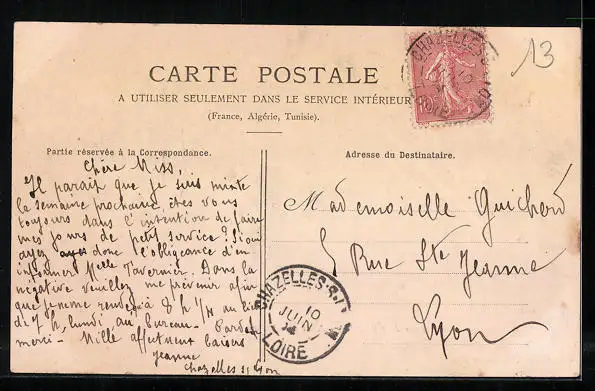 13
CARTE POSTALE
A UTILISER SEULEMENT DANS LE SERVICE INTÉRIEUR
(France, Algérie, Tunisie).
Partie réservée à la Correspondance.
Chère Miss,
Il parait que je suis
la semaine prochaine, êtes vous
toujours dans l'intention de faire
mes jours de petit service? Si oui
ayez donc l'obligeance d'en
informer Melle Tavernier. Dans la
négative veuillez me prévenir afin
que je me rende à 8 h 1/4 au lieu
de 7 h, lundi, au bureau.
merci - Mille affectueux baisers
Jeanne
Chazelles s/ Lyon
Adresse du Destinataire.
Mademoiselle Guichard
5 Rue Ste Jeanne
Lyon
CHAZELLES-S-
10
LOIRE
10
CHAZELLES-S-L
10
JUIN
LOIRE